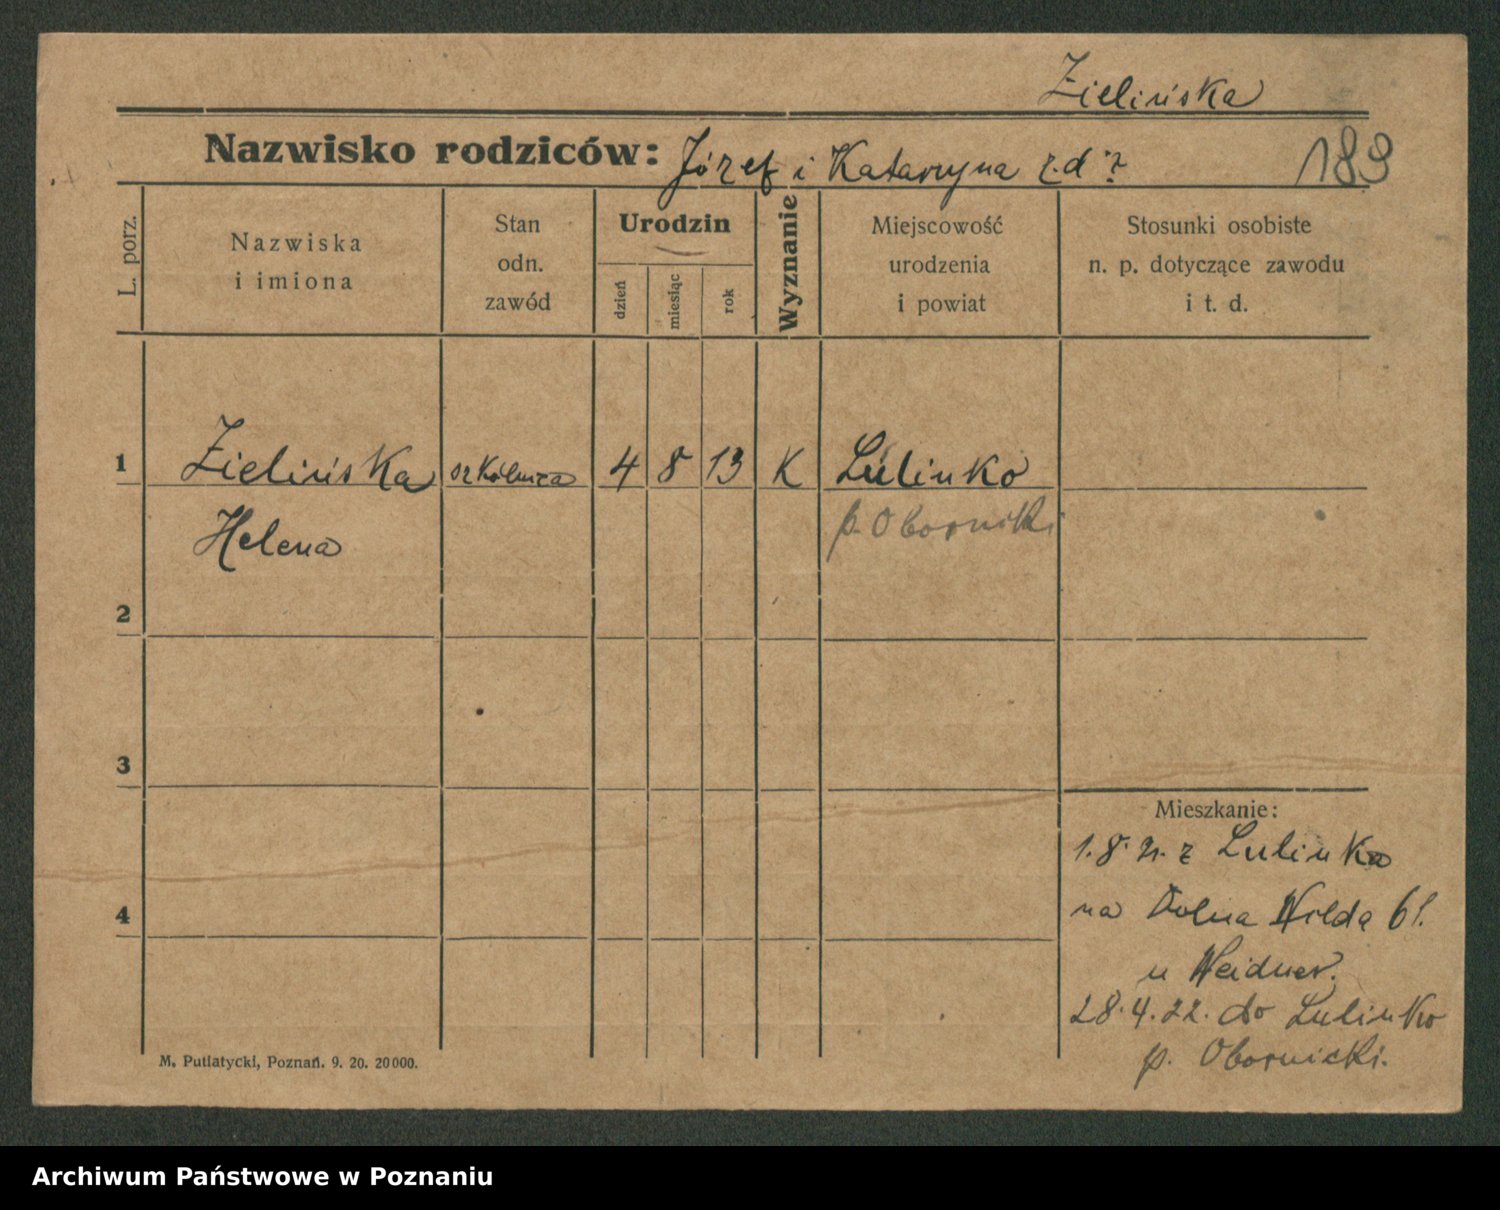 Zielińska
Nazwisko rodziców: Józef i Katarzyna z.d.?
189
L. porz.
Nazwiska
i imiona
Stan
odn.
zawód
Urodzin
dzień
miesiąc
rok
Wyznanie
Miejscowość
urodzenia
i powiat
Stosunki osobiste
n. p. dotyczące zawodu
i t. d.
1 Zielińska szkólnica 4 8 13 K Lulinko
Helena p. Obornicki
2
3
Mieszkanie:
1.8.21. z Lulinka
4
na Dolna Wilda 61.
u Weidner.
28.4.22. do Lulinko
p. Obornicki.
M. Putiatycki, Poznań. 9. 20. 20000.
Archiwum Państwowe w Poznaniu